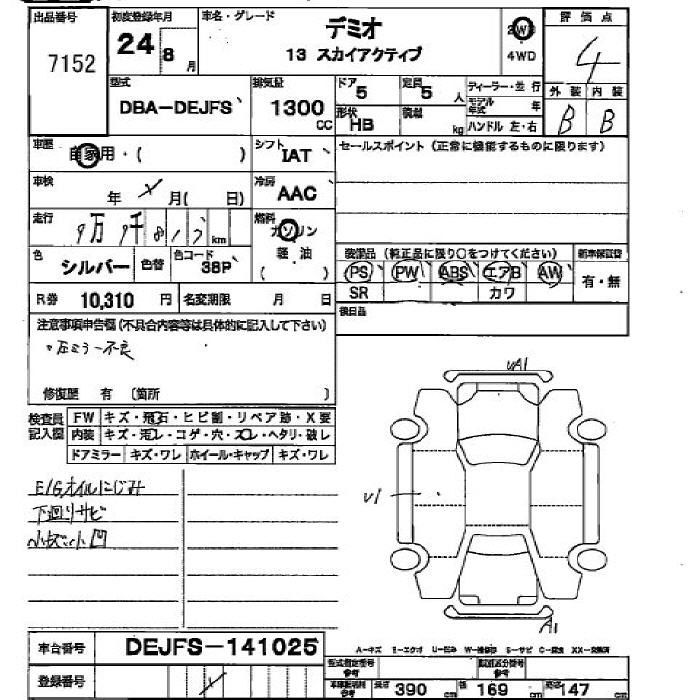 出品番号 初度登録年月 車名・グレード デミオ 2WD 評価点
7152 24 8 月 13 スカイアクティブ 4WD 4
型式 排気量 ドア 定員 ディーラー・並行 外装 内装
DBA-DEJFS 1300 CC 5 5 人 モデル年式 年 B B
形状 HB 積載 kg ハンドル 左・右
車歴 自家用・( ) シフト IAT セールスポイント (正常に機能するものに限ります)
車検 年 月( 日) 冷房 AAC
走行 9万 9千 8 km 燃料 ガソリン 軽・油 ( )
色 シルバー 色替 色コード 38P
装備品 (純正品に限り○をつけてください) 新車保証書
PS PW ABS エアB AW 有・無
SR カワ
R券 10,310 円 名変期限 月 日
後日品
注意事項申告欄(不具合内容等は具体的に記入して下さい)
・左ミラー不良
修復歴 有 〔箇所 〕
検査員記入欄 FW キズ・飛石・ヒビ割・リペア跡・X要
内装 キズ・汚レ・コゲ・穴・スレ・ヘタリ・破レ
ドアミラー キズ・ワレ ホイール・キャップ キズ・ワレ
E/Gオイルにじみ
下廻りサビ
小キズ小凹
UA1
U1
A1
車台番号 DEJFS-141025
登録番号
A-キズ U-凹み W-補修跡 S-サビ C-腐食 XX-交換済
型式指定番号 参考 類別区分番号 参考
参考 長さ 390 cm 幅 169 cm 高さ 147 cm